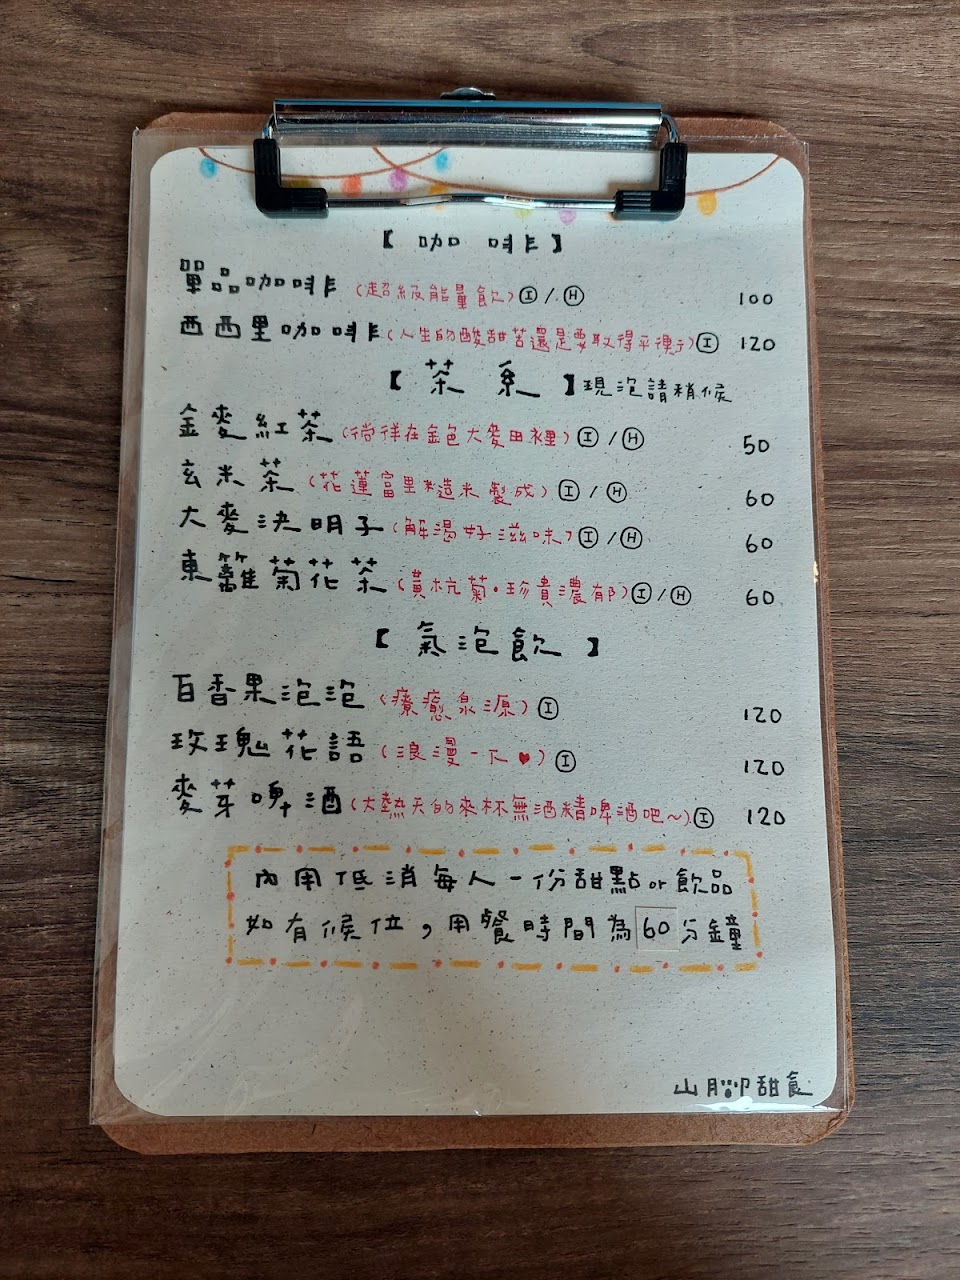 【 咖 啡 】
單品咖啡 (超級能量飲) Ⓘ / Ⓗ 100
西西里咖啡 (人生的酸甜苦還是要取得平衡) Ⓘ 120
【 茶 系 】現泡請稍候
金麥紅茶 (徜徉在金色大麥田裡) Ⓘ / Ⓗ 50
玄米茶 (花蓮富里糙米製成) Ⓘ / Ⓗ 60
大麥決明子 (解渴好滋味) Ⓘ / Ⓗ 60
東籬菊花茶 (黃杭菊•珍貴濃郁) Ⓘ / Ⓗ 60
【 氣泡飲 】
百香果泡泡 (療癒泉源) Ⓘ 120
玫瑰花語 (浪漫一下♥) Ⓘ 120
麥芽啤酒 (大熱天的來杯無酒精啤酒吧~) Ⓘ 120
內用低消每人一份甜點or飲品
如有候位，用餐時間為60分鐘
山腳甜食